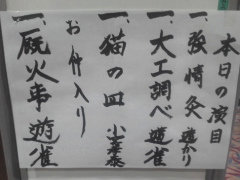 本日の演目
一、強情灸 遊かり
一、大工調べ 遊雀
一、猫の皿 小蓑泰
お仲入り
一、厩火事 遊雀